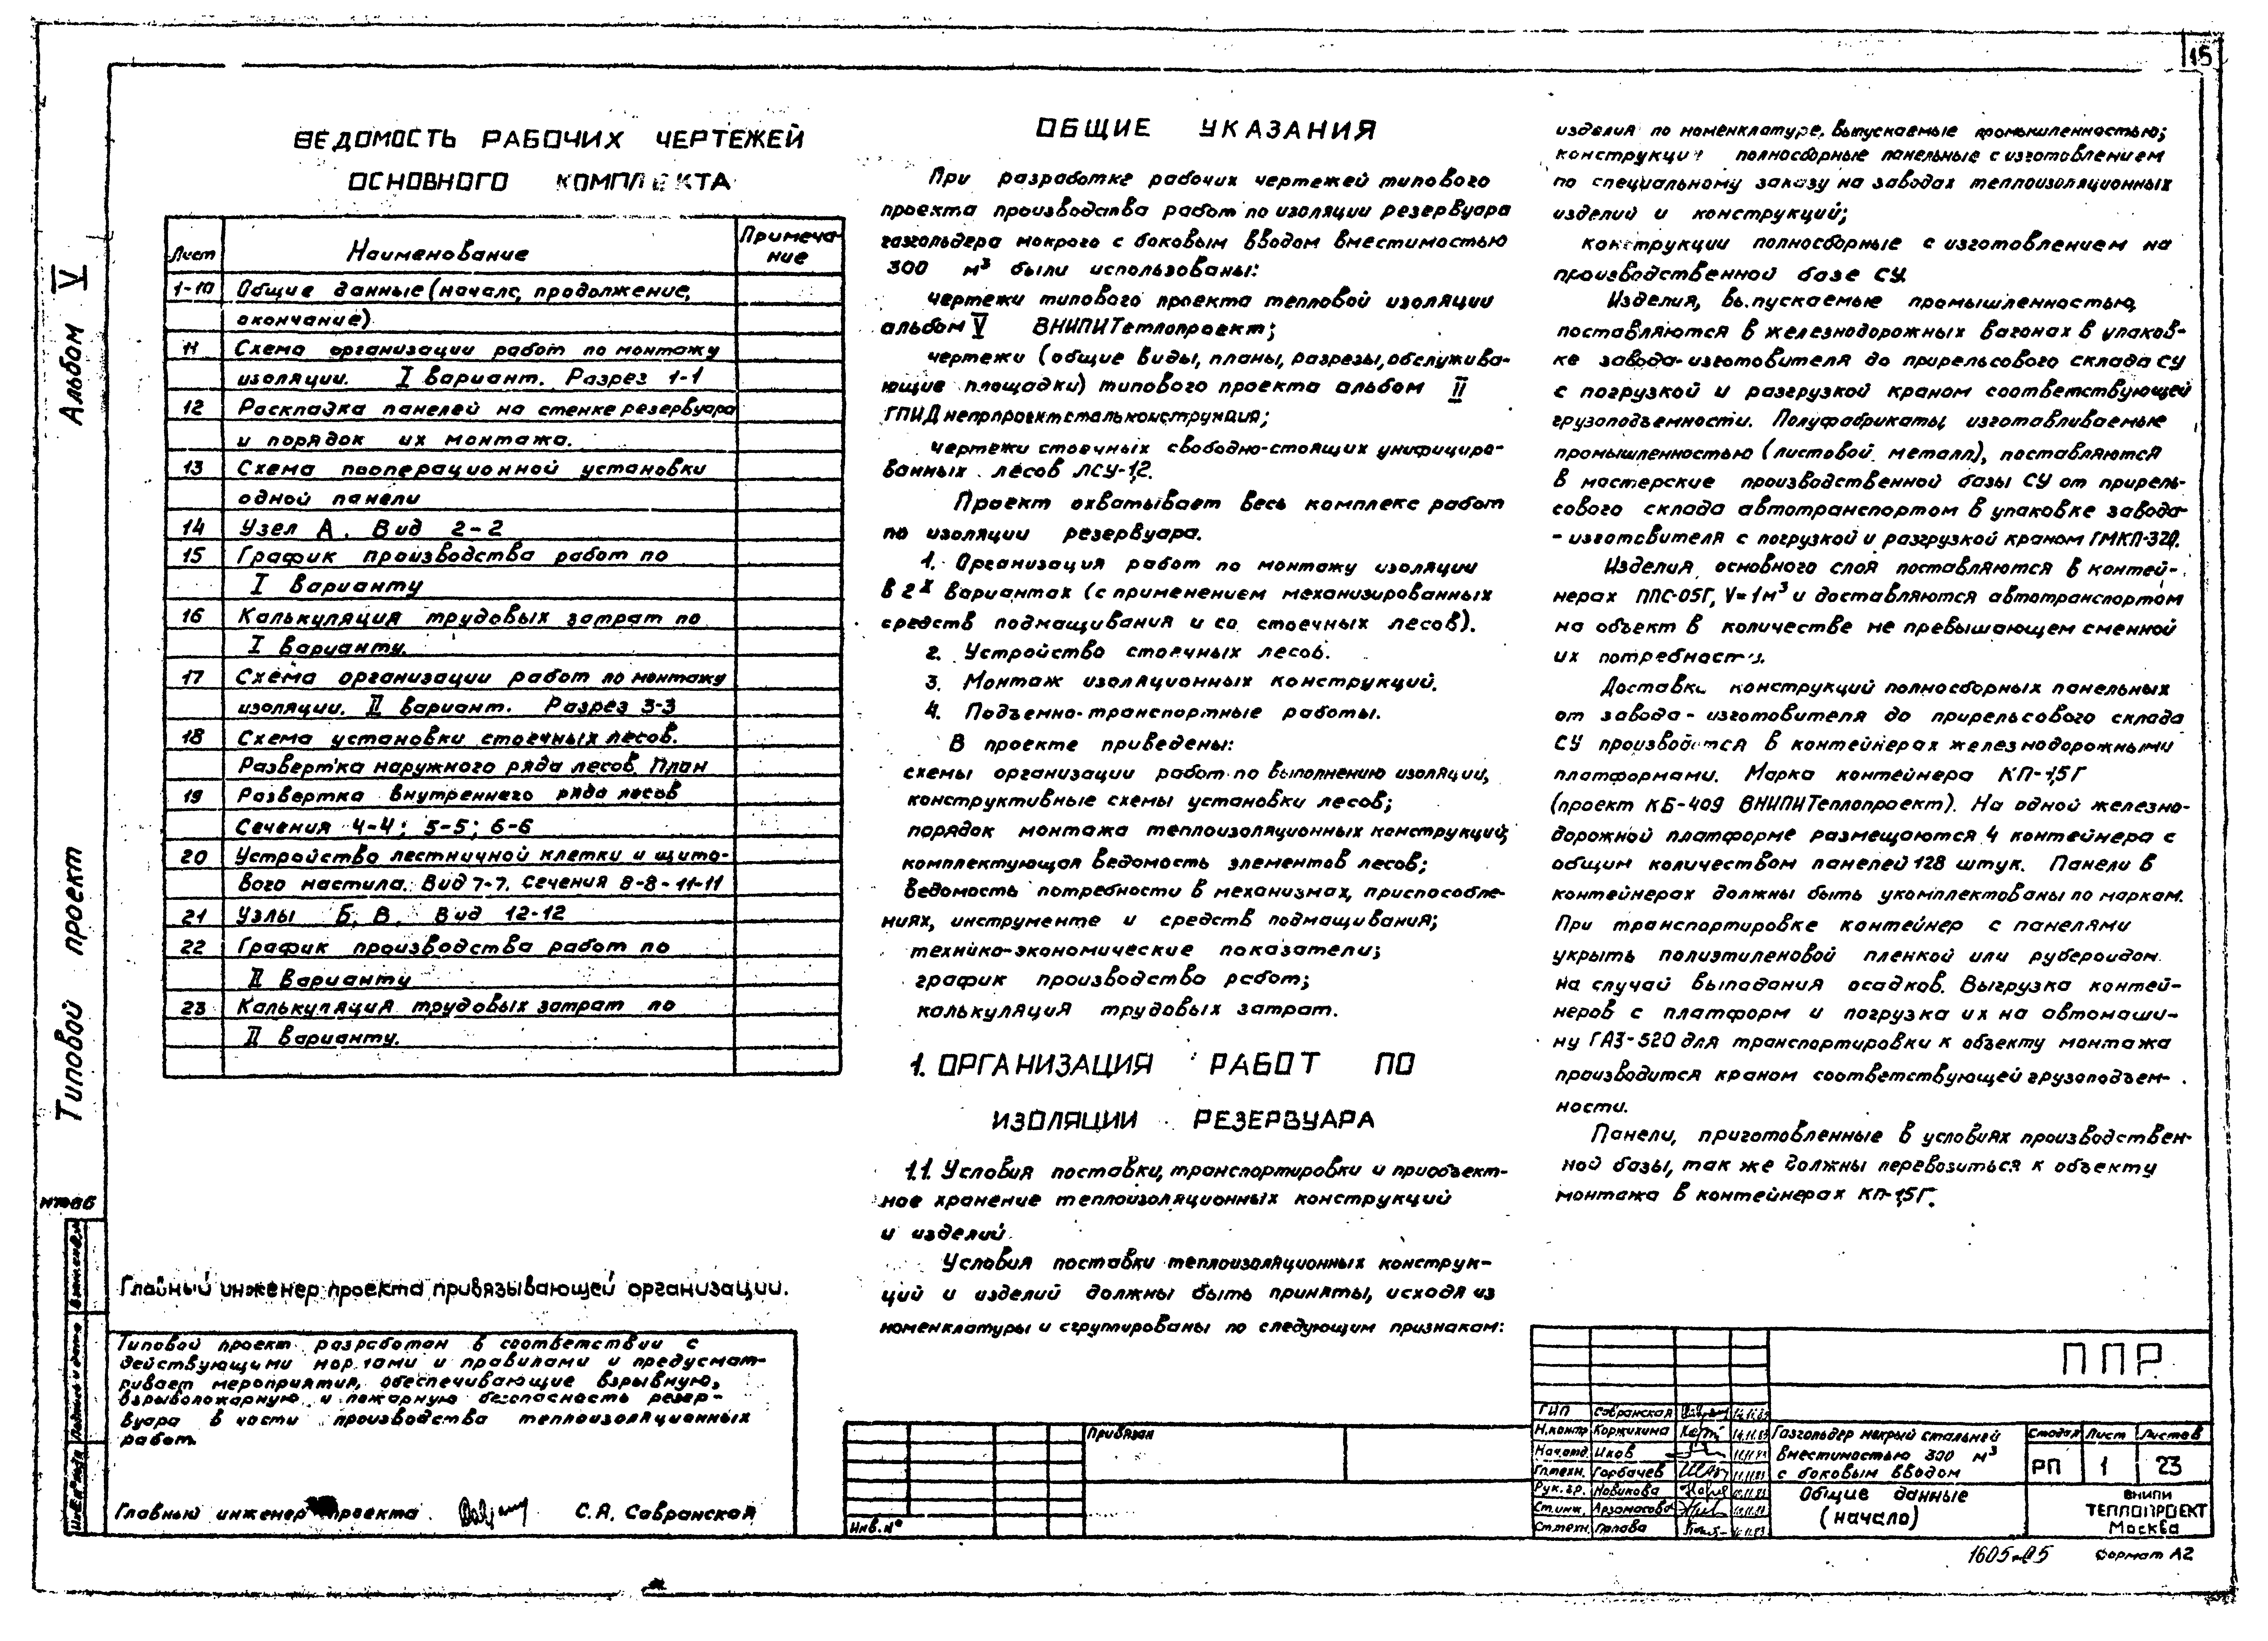 15
ВЕДОМОСТЬ РАБОЧИХ ЧЕРТЕЖЕЙ
ОСНОВНОГО КОМПЛЕКТА
Лист Наименование Примеча-
ние
1-10 Общие данные (начало, продолжение,
окончание)
11 Схема организации работ по монтажу
изоляции. I вариант. Разрез 1-1
12 Раскладка панелей на стенке резервуара
и порядок их монтажа.
13 Схема пооперационной установки
одной панели
14 Узел А. Вид 2-2
15 График производства работ по
I варианту
16 Калькуляция трудовых затрат по
I варианту.
17 Схема организации работ по монтажу
изоляции. II вариант. Разрез 3-3
18 Схема установки стоечных лесов.
Развертка наружного ряда лесов. План
19 Развертка внутреннего ряда лесов
Сечения 4-4; 5-5; 6-6
20 Устройство лестничной клетки и щито-
вого настила. Вид 7-7. Сечения 8-8 - 11-11
21 Узлы Б, В. Вид 12-12
22 График производства работ по
II варианту
23 Калькуляция трудовых затрат по
II варианту.
Главный инженер проекта привязывающей организации.
Типовой проект разработан в соответствии с
действующими нормами и правилами и предусмат-
ривает мероприятия, обеспечивающие взрывную,
взрывопожарную и пожарную безопасность резер-
вуара в части производства теплоизоляционных
работ.
Главный инженер проекта С.А. Савранская
Альбом V
Типовой проект
Взам.инв.№
Подпись и дата
Инв.№ подл
ОБЩИЕ УКАЗАНИЯ
При разработке рабочих чертежей типового
проекта производства работ по изоляции резервуара
газгольдера мокрого с боковым вводом вместимостью
300 м³ были использованы:
чертежи типового проекта тепловой изоляции
альбом V ВНИПИТеплопроект;
чертежи (общие виды, планы, разрезы, обслужива-
ющие площадки) типового проекта альбом II
ГПИДнепрпроектстальконструкция;
чертежи стоечных свободно-стоящих унифициро-
ванных лесов ЛСУ-12.
Проект охватывает весь комплекс работ
по изоляции резервуара.
1. Организация работ по монтажу изоляции
в 2х вариантах (с применением механизированных
средств подмащивания и со стоечных лесов).
2. Устройство стоечных лесов.
3. Монтаж изоляционных конструкций.
4. Подъемно-транспортные работы.
В проекте приведены:
схемы организации работ по выполнению изоляции,
конструктивные схемы установки лесов;
порядок монтажа теплоизоляционных конструкций;
комплектующая ведомость элементов лесов;
ведомость потребности в механизмах, приспособле-
ниях, инструменте и средств подмащивания;
технико-экономические показатели;
график производства работ;
калькуляция трудовых затрат.
1. ОРГАНИЗАЦИЯ РАБОТ ПО
ИЗОЛЯЦИИ РЕЗЕРВУАРА
1.1. Условия поставки, транспортировки и приобъект-
ное хранение теплоизоляционных конструкций
и изделий.
Условия поставки теплоизоляционных конструк-
ций и изделий должны быть приняты, исходя из
номенклатуры и сгруппированы по следующим признакам:
изделия по номенклатуре, выпускаемые промышленностью;
конструкции полносборные панельные с изготовлением
по специальному заказу на заводах теплоизоляционных
изделий и конструкций;
конструкции полносборные с изготовлением на
производственной базе СУ.
Изделия, выпускаемые промышленностью,
поставляются в железнодорожных вагонах в упаков-
ке завода-изготовителя до прирельсового склада СУ
с погрузкой и разгрузкой краном соответствующей
грузоподъемности. Полуфабрикаты, изготавливаемые
промышленностью (листовой металл), поставляются
в мастерские производственной базы СУ от прирель-
сового склада автотранспортом в упаковке завода-
-изготовителя с погрузкой и разгрузкой краном ГМКП-320.
Изделия основного слоя поставляются в контей-
нерах ППС-05Г, V=1м³ и доставляются автотранспортом
на объект в количестве не превышающем сменной
их потребности.
Доставка конструкций полносборных панельных
от завода-изготовителя до прирельсового склада
СУ производится в контейнерах железнодорожными
платформами. Марка контейнера КП-1,5Г
(проект КБ-409 ВНИПИТеплопроект). На одной железно-
дорожной платформе размещаются 4 контейнера с
общим количеством панелей 128 штук. Панели в
контейнерах должны быть укомплектованы по маркам.
При транспортировке контейнер с панелями
укрыть полиэтиленовой пленкой или рубероидом
на случай выпадания осадков. Выгрузка контей-
неров с платформ и погрузка их на автомаши-
ну ГАЗ-520 для транспортировки к объекту монтажа
производится краном соответствующей грузоподъем-
ности.
Панели, приготовленные в условиях производствен-
ной базы, так же должны перевозиться к объекту
монтажа в контейнерах КП-1,5Г.
Привязан
Инв.№
ППР
ГИП Савранская 14.11.83
Н.контр Коржихина 14.11.83
Нач.отд. Иков
Гл.техн. Горбачев
Рук.гр. Новикова
Ст.инж. Арзамасова
Ст.техн. Попова
Газгольдер мокрый стальной
вместимостью 300 м³
с боковым вводом
Общие данные
(начало)
Стадия Лист Листов
РП 1 23
ВНИПИ
ТЕПЛОПРОЕКТ
Москва
1605-05 Формат А2